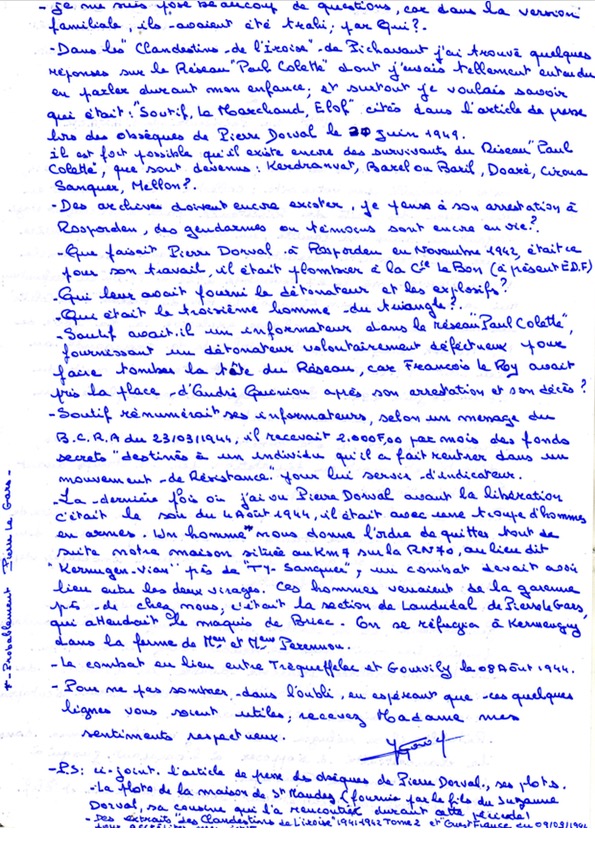 - Je me suis posé beaucoup de questions, car dans la version
familiale, ils avaient été trahi, par Qui?.
- Dans les "Clandestins de l'Iroise" de Pichavant j'ai trouvé quelques
réponses sur le Réseau "Paul Colette" dont j'avais tellement entendu
en parler durant mon enfance; et surtout je voulais savoir
qui était: "Soutif, Le Marchand, Elof" cités dans l'article de presse
lors des obsèques de Pierre Dorval le 20 juin 1949.
il est fort possible qu'il existe encore des survivants du Réseau "Paul
Colette", que sont devenus: Kerdranvat, Barel ou Baril, Doaré,
Sanquer, Mellon?.
- Des archives doivent encore exister, je pense à son arrestation à
Rosporden, des gendarmes ou témoins sont encore en vie?.
- Que faisait Pierre Dorval à Rosporden en Novembre 1942, était ce
pour son travail, il était plombier à la Cie Le Bon (à présent E.D.F)
- Qui leur avait fourni le détonateur et les explosifs?
- Qui était le troisième homme du triangle?.
- Soutif avait.il un informateur dans le réseau "Paul Colette",
fournissant un détonateur volontairement défectueux pour
faire tomber la tête du Réseau, car François Le Roy avait
pris la place d'André Quéniou après son arrestation et son décès?
- Soutif rémunérait ses informateurs, selon un message du
B.C.R.A du 23/03/1944, il recevait 2.000F,00 par mois des fonds
secrets "destinés à un individu qu'il a fait rentrer dans un
mouvement de Résistance" pour lui servir d'indicateur.
- La dernière fois où j'ai vu Pierre Dorval avant la libération
c'était le soir du 4 Août 1944, il était avec une troupe d'hommes
en armes. Un homme* nous donne l'ordre de quitter tout de
suite notre maison située au Km 7 sur la RN 70, au lieu dit
"Kernugen-Vian" près de "Ty-Sanquer", un combat devait avoir
lieu entre les deux virages. Ces hommes venaient de la garenne
près de chez nous, c'était la section de Landudal de Pierre Le Gars,
qui attendait le maquis de Briec. On se réfugia à
dans la ferme de Mr et Mme Perennou.
- Le combat eu lieu entre Tréqueffelec et Gourvily le 08 Août 1944.
- Pour ne pas sombrer dans l'oubli, en espérant que ces quelques
lignes vous soient utiles, recevez Madame mes
sentiments respectueux.
- P.S: ci-joint. l'article de presse des obsèques de Pierre Dorval., ses photos.
- La photo de la maison de St Maudez (fournie par le fils de Suzanne
Dorval, sa cousine que j'a rencontrée durant cette période!
- Des extraits "des Clandestins de l'Iroise" 1941-1942 Tome 2 et Ouest France du 09/09/1944
* - Probablement Pierre Le Gars -